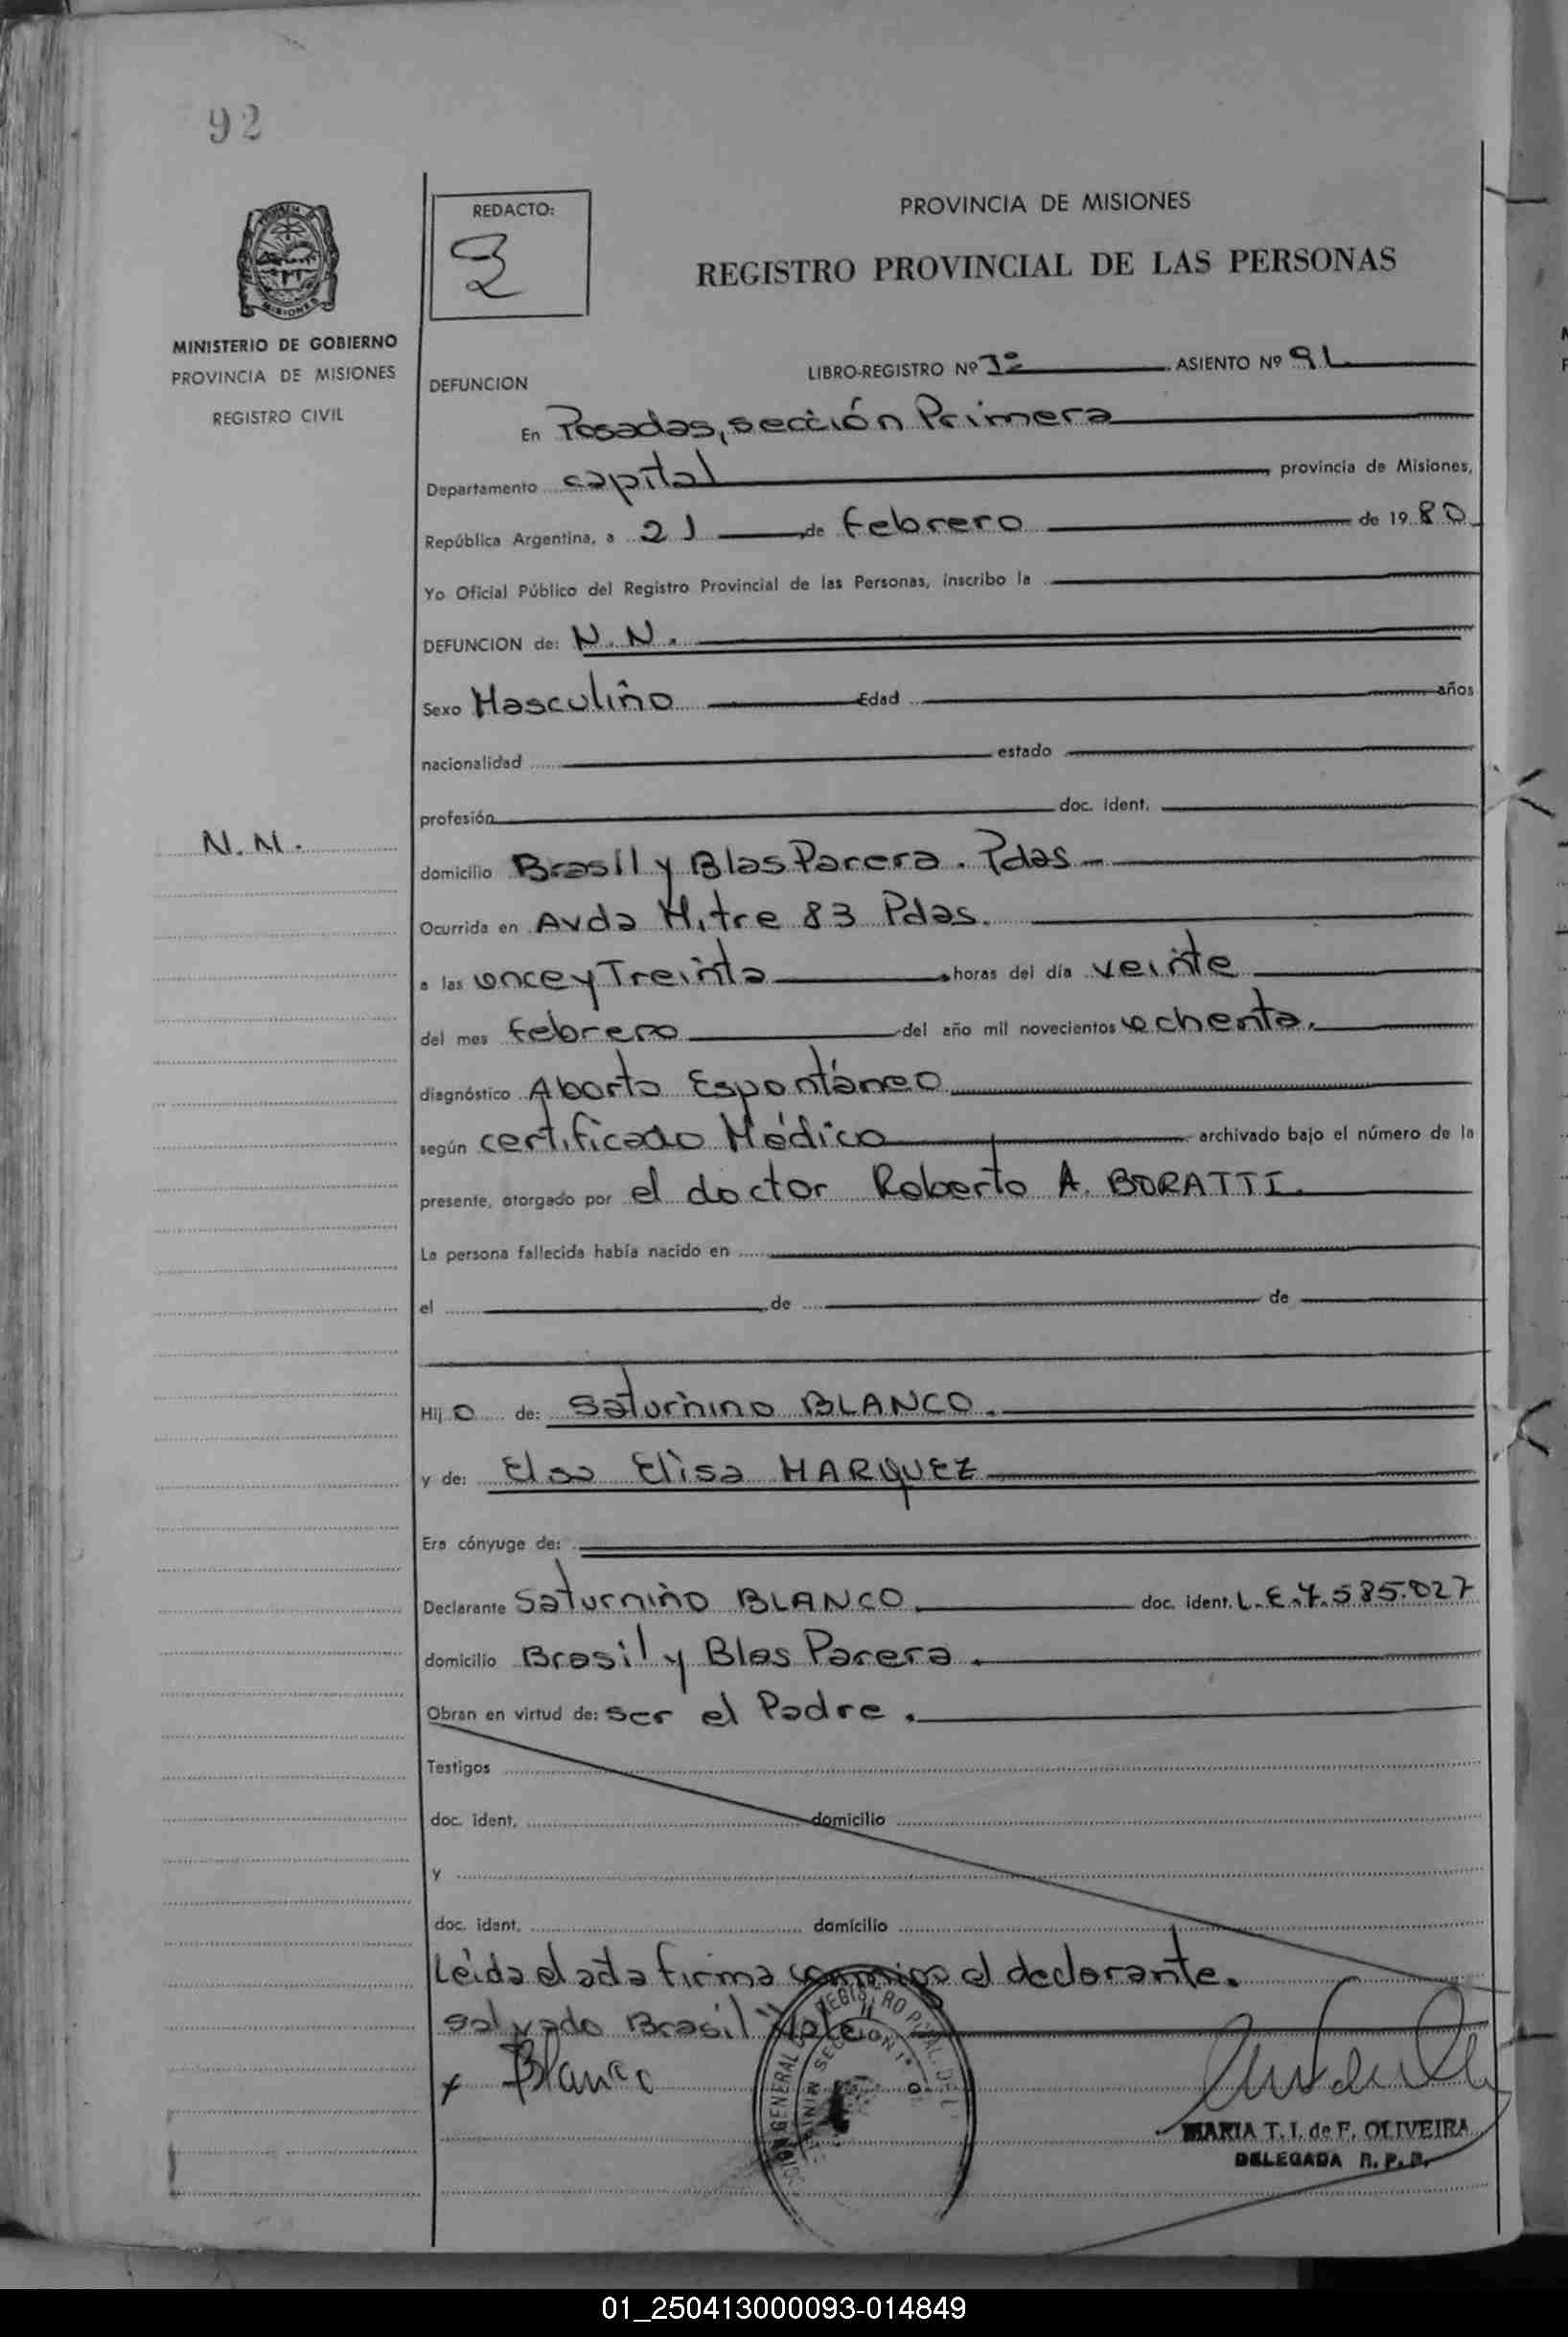 92
REDACTO:
PROVINCIA DE MISIONES
REGISTRO PROVINCIAL DE LAS PERSONAS
MISIONES
MINISTERIO DE GOBIERNO
PROVINCIA DE MISIONES
REGISTRO CIVIL
LIBRO-REGISTRO Nº 1º ASIENTO Nº 91
DEFUNCION
En Posadas, sección Primera
Departamento capital, provincia de Misiones,
República Argentina, a 21 de febrero de 1980
Yo Oficial Público del Registro Provincial de las Personas, inscribo la
DEFUNCION de: N.N.
Sexo Masculino Edad años
nacionalidad estado
profesión doc. ident.
N.N.
domicilio Brasil y Blas Parera. Pdas
Ocurrida en Avda Mitre 83 Pdas.
a las once y Treinta horas del día veinte
del mes febrero del año mil novecientos ochenta.
diagnóstico Aborto Espontáneo
según certificado Médico archivado bajo el número de la
presente, otorgado por el doctor Roberto A. BORATTI.
La persona fallecida había nacido en
el de de
Hijo de: Saturnino BLANCO.
y de: Elsa Elisa MARQUEZ
Era cónyuge de:
Declarante Saturnino BLANCO doc. ident. L.E. 7.585.027
domicilio Brasil y Blas Parera.
Obran en virtud de: ser el Padre.
Testigos
doc. ident. domicilio
y
doc. ident. domicilio
Leída el acta firma conmigo el declarante.
salvado Brasil "Vale"
x Blanco
MARIA T. I. de F. OLIVEIRA
DELEGADA R. P. P.
01_250413000093-014849